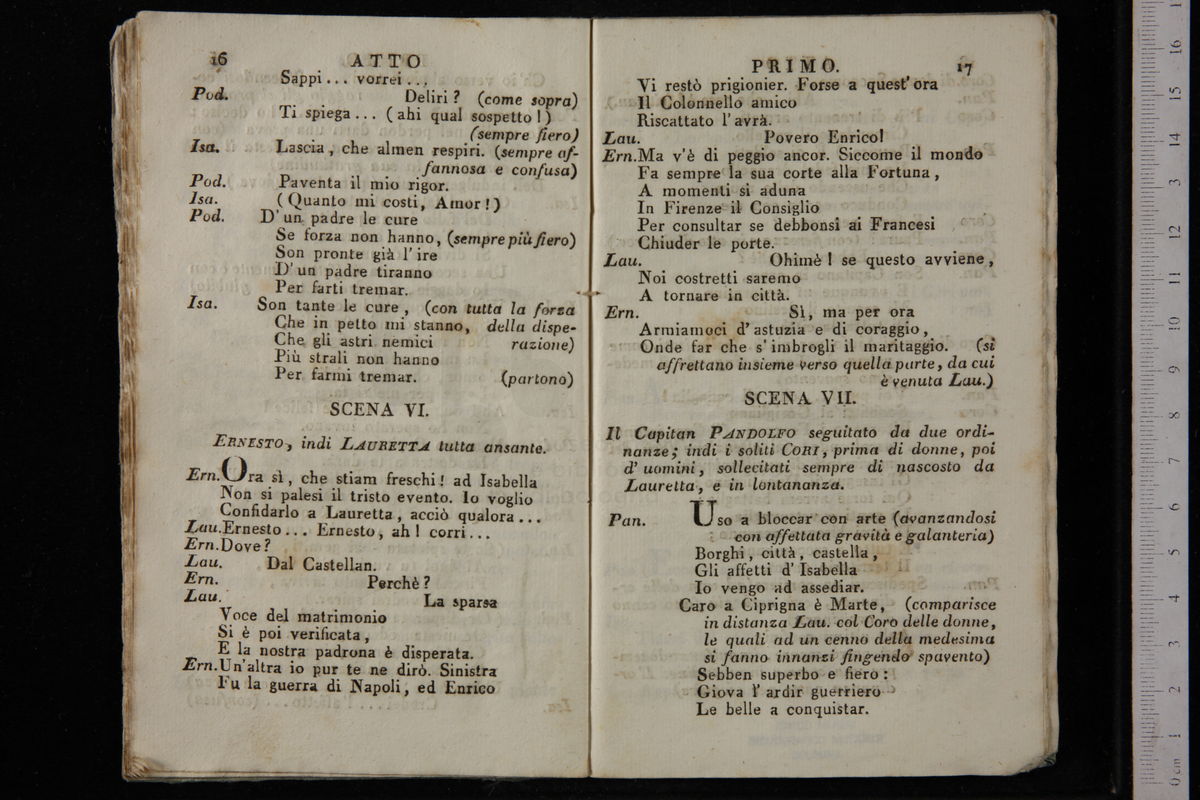 16 ATTO
Sappi... vorrei...
Pod. Deliri? (come sopra)
Ti spiega... (ahi qual sospetto!)
(sempre fiero)
Isa. Lascia, che almen respiri. (sempre af-
fannosa e confusa)
Pod. Paventa il mio rigor.
Isa. (Quanto mi costi, Amor!)
Pod. D'un padre le cure
Se forza non hanno, (sempre più fiero)
Son pronte già l'ire
D'un padre tiranno
Per farti tremar.
Isa. Son tante le cure, (con tutta la forza
Che in petto mi stanno, della dispe-
Che gli astri nemici razione)
Più strali non hanno
Per farmi tremar. (partono)
SCENA VI.
ERNESTO, indi LAURETTA tutta ansante.
Ern. Ora sì, che stiam freschi! ad Isabella
Non si palesi il tristo evento. Io voglio
Confidarlo a Lauretta, acciò qualora...
Lau. Ernesto... Ernesto, ah! corri...
Ern. Dove?
Lau. Dal Castellan.
Ern. Perchè?
Lau. La sparsa
Voce del matrimonio
Si è poi verificata,
E la nostra padrona è disperata.
Ern. Un'altra io pur te ne dirò. Sinistra
Fu la guerra di Napoli, ed Enrico
PRIMO. 17
Vi restò prigionier. Forse a quest'ora
Il Colonnello amico
Riscattato l'avrà.
Lau. Povero Enrico!
Ern. Ma v'è di peggio ancor. Siccome il mondo
Fa sempre la sua corte alla Fortuna,
A momenti si aduna
In Firenze il Consiglio
Per consultar se debbonsi ai Francesi
Chiuder le porte.
Lau. Ohimè! se questo avviene,
Noi costretti saremo
A tornare in città.
Ern. Sì, ma per ora
Armiamoci d'astuzia e di coraggio,
Onde far che s'imbrogli il maritaggio. (si
affrettano insieme verso quella parte, da cui
è venuta Lau.)
SCENA VII.
Il Capitan PANDOLFO seguitato da due ordi-
nanze; indi i soliti CORI, prima di donne, poi
d'uomini, sollecitati sempre di nascosto da
Lauretta, e in lontananza.
Pan. Uso a bloccar con arte (avanzandosi
con affettata gravità e galanteria)
Borghi, città, castella,
Gli affetti d'Isabella
Io vengo ad assediar.
Caro a Ciprigna è Marte, (comparisce
in distanza Lau. col Coro delle donne,
le quali ad un cenno della medesima
si fanno innanzi fingendo spavento)
Sebben superbo e fiero:
Giova l'ardir guerriero
Le belle a conquistar.
0 cm 1 2 3 4 5 6 7 8 9 10 11 12 13 14 15 16